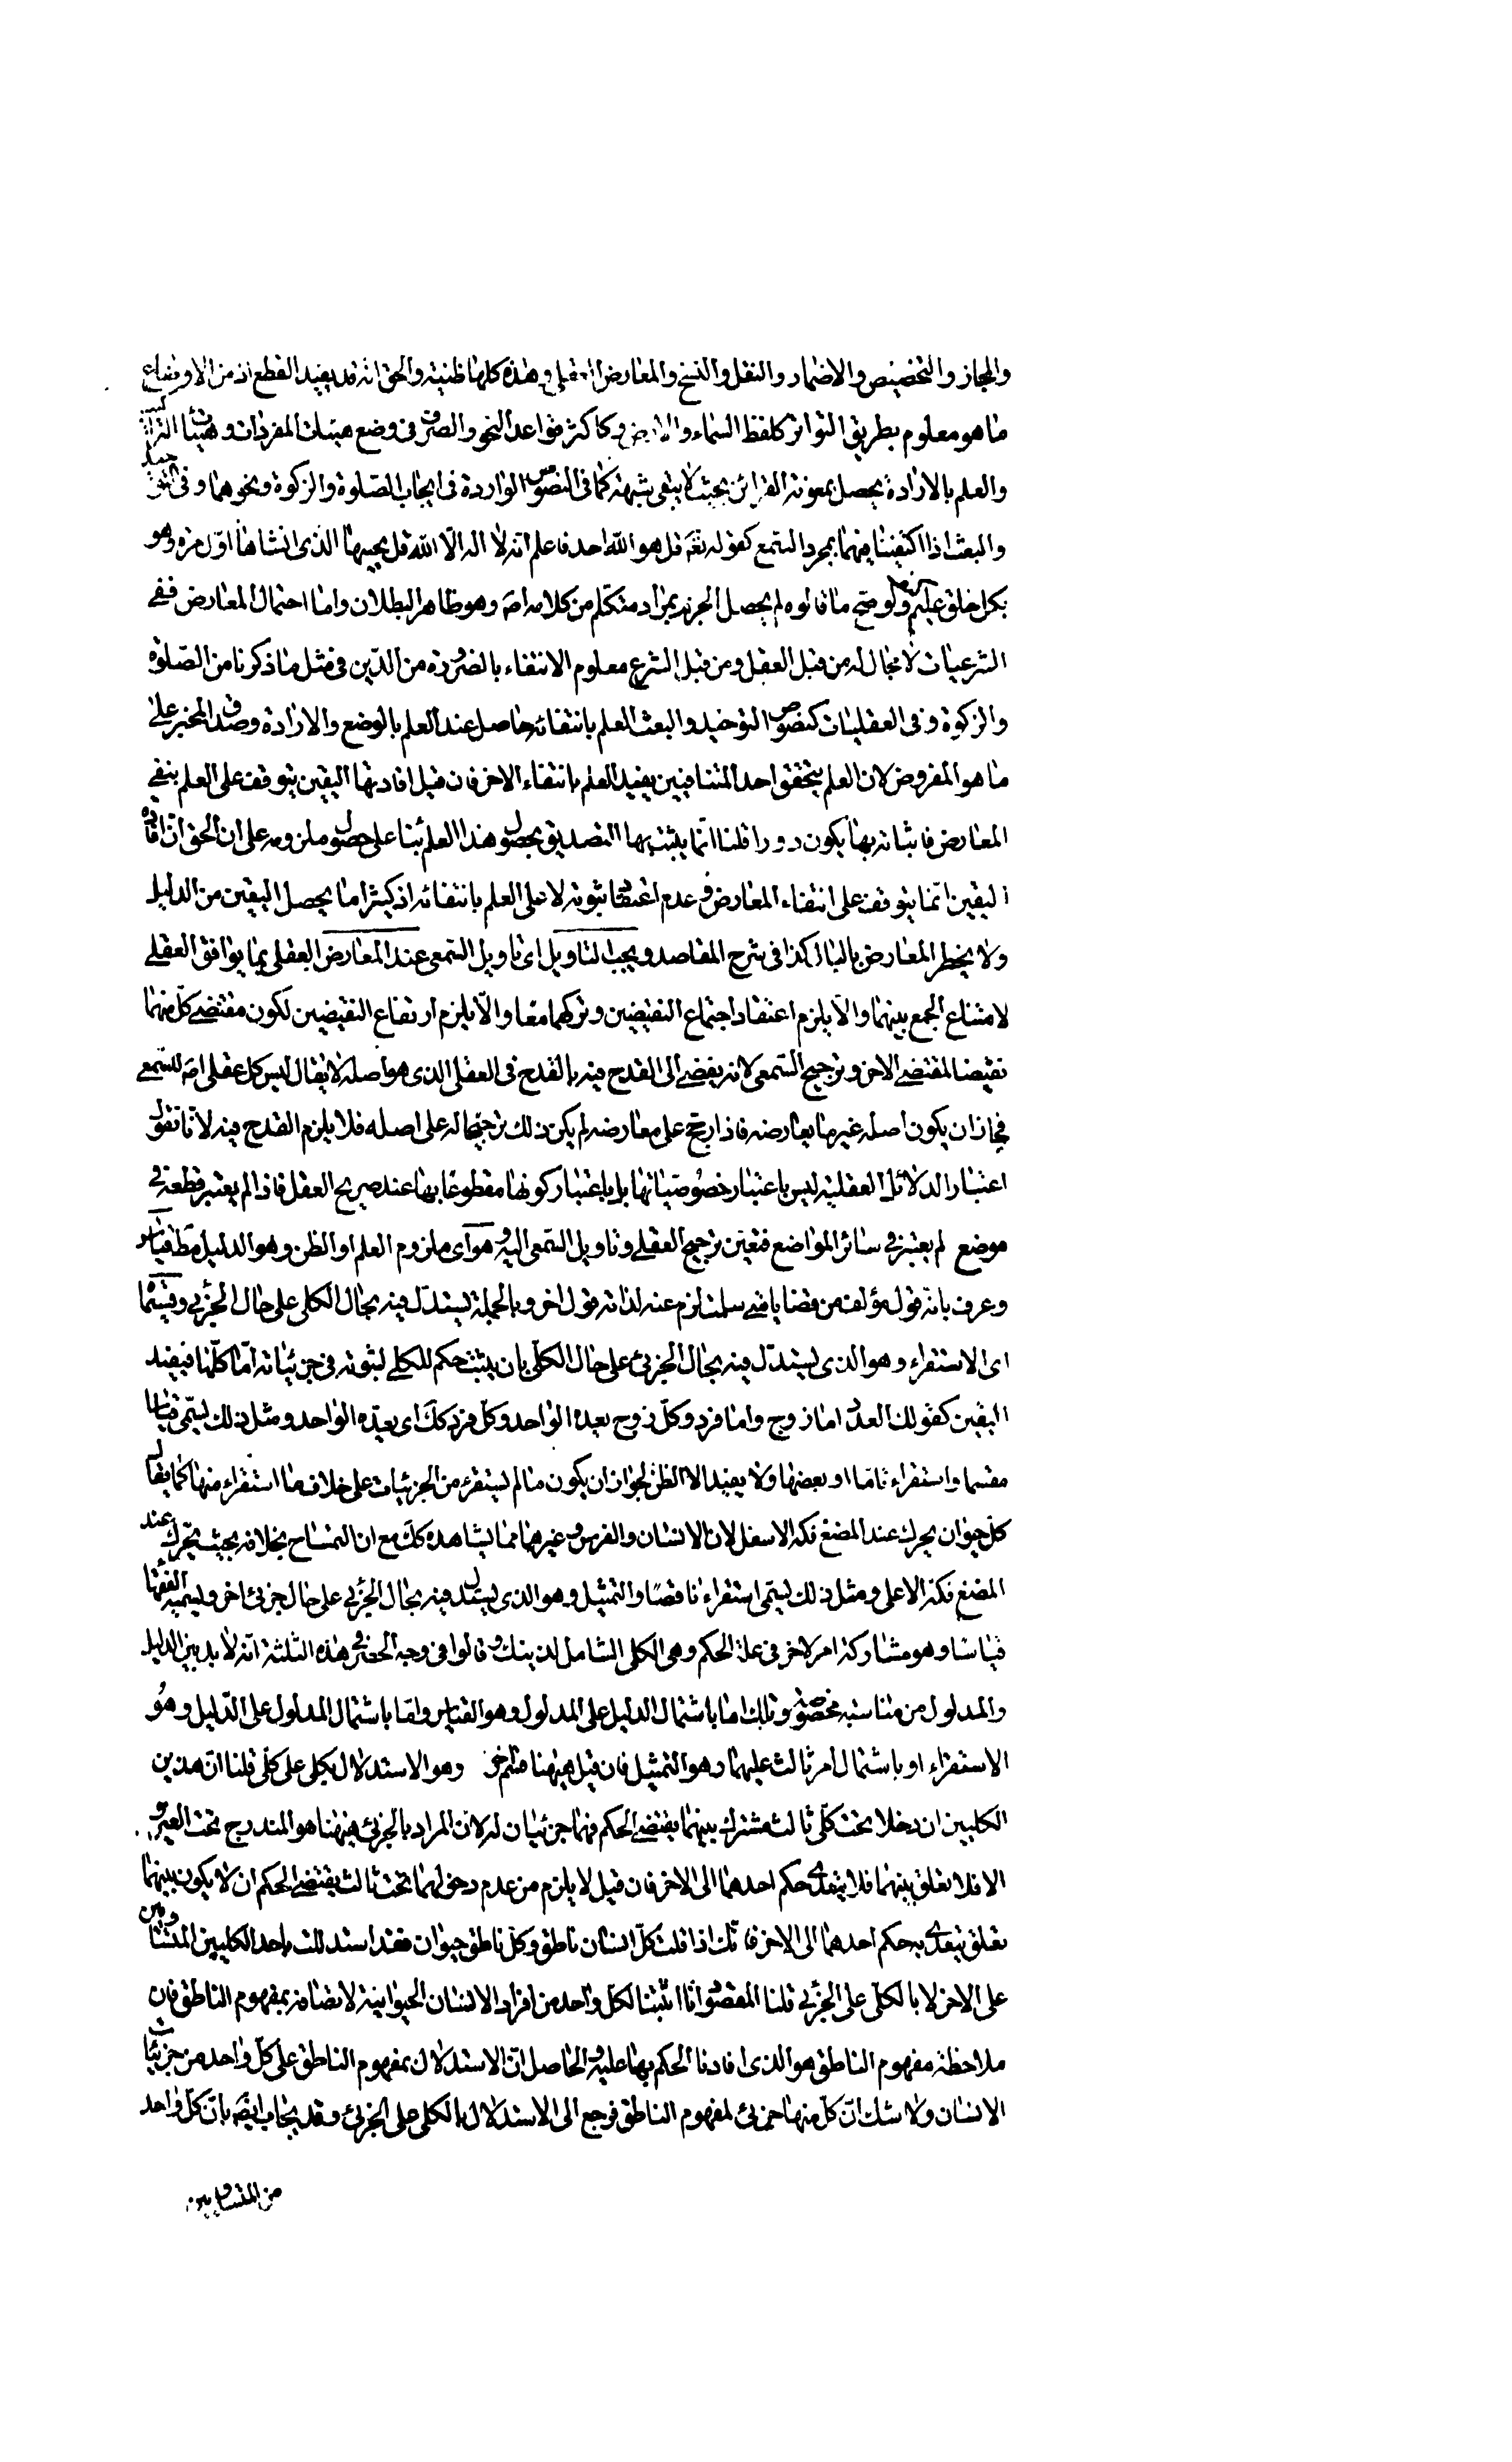 والمجاز والتخصيص والاضمار والنقل والنسخ والمعارض العقلى وهذه كلها ظنية والحق انه قد يفيد القطع اذ من الاوضاع
ما هو معلوم بطريق التواتر كلفظ السماء والارض وكاكثر قواعد النحو والصرف فى وضع هيئات المفردات وهيئات التراكيب
والعلم بالارادة يحصل بمعونة القرائن بحيث لا يبقى شبهة كما فى النصوص الواردة فى ايجاب الصلوة والزكوة ونحوهما وفى التوحيد
والبعث اذا اكتفينا فيهما بمجرد السمع كقوله تعَ قل هو الله احد فاعلم انه لا اله الا الله قل يحييها الذى انشاها اول مرة وهو
بكل خلق عليم ولو صح ما قالوه لم يحصل الجزم بمراد متكلم من كلامه اصَ وهو ظاهر البطلان واما احتمال المعارض ففى
الشرعيات لا مجال له من قبل العقل ومن قبل الشرع معلوم الانتفاء بالضرورة من الدين فى مثل ما ذكرنا من الصلوة
والزكوة وفى العقليات كنصوص التوحيد والبعث العلم بانتفائه حاصل عند العلم بالوضع والارادة وصدق المخبر على
ما هو المفروض لان العلم بتحقق احد المتنافيين يفيد العلم بانتفاء الاخر فان قيل افادتها اليقين يتوقف على العلم بنفى
المعارض فاثباته بها يكون دورا قلنا انما يثبت بها التصديق بحصول هذا العلم بناء على حصول ملزومه على ان الحق ان افادة
اليقين انما يتوقف على انتفاء المعارض وعدم اعتقاد ثبوته لا على العلم بانتفائه اذ كثيرا ما يحصل اليقين من الدليل
ولا يخطر المعارض بالبال كذا فى شرح المقاصد ويجب التاويل اى تاويل السمعى عند المعارض العقلى بما يوافق العقلى
لامتناع الجمع بينهما والا يلزم اعتقاد اجتماع النقيضين وتركهما معا والا يلزم ارتفاع النقيضين لكون مقتضى كل منهما
نقيضا لمقتضى الاخر وترجيح السمعى لانه يفضى الى القدح فيه بالقدح فى العقلى الذى هو اصله لا يقال ليس كل عقلى اصَ للسمعى
فجاز ان يكون اصله غير ما يعارضه فاذا رجح على معارضه لم يكن ذلك ترجيحا له على اصله فلا يلزم القدح فيه لانا نقول
اعتبار الدلائل العقلية ليس باعتبار خصوصياتها بل باعتبار كونها مقطوعا بها عند صريح العقل فاذا لم يعتبر قطعه فى
موضع لم يعتبر فى سائر المواضع فتعين ترجيح العقلى وتاويل السمعى اليه وهو اى ملزوم العلم او الظن وهو الدليل مطَ قياس
وعرف بانه قول مؤلف من قضايا متى سلمت لزم عنه لذاته قول اخر وبالجملة يستدل فيه بحال الكلى على حال الجزئى وقسيماه
اى الاستقراء وهو الذى يستدل فيه بحال الجزئى على حال الكلى بان يثبت حكم للكلى لثبوته فى جزئياته اما كلها فيفيد
اليقين كقولك العدد اما زوج واما فرد وكل زوج يعده الواحد وكل فرد كك اى يعده الواحد ومثل ذلك يسمى قياسا
مقسما واستقراء تاما او بعضها ولا يفيد الا الظن لجواز ان يكون ما لم يستقرء من الجزئيات على خلاف ما استقراء منها كما يقال
كل حيوان يحرك عند المضغ فكه الاسفل لان الانسان والفرس وغيرهما مما يشاهده كك مع ان التمساح بخلافه بحيث يتحرك عند
المضغ فكه الاعلى ومثل ذلك يسمى استقراء ناقصا والتمثيل وهو الذى يستدل فيه بحال الجزئى على حال جزئى اخر ويسميه الفقها
قياسا وهو مشاركة امر لاخر فى علة الحكم وهى الكلى الشامل لذينك وقالوا فى وجه الحصر فى هذه الثلثة انه لا بد بين الدليل
والمدلول من مناسبة مخصوصة وتلك اما باشتمال الدليل على المدلول وهو القياس واما باشتمال المدلول على الدليل وهو
الاستقراء او باشتمال امر ثالث عليهما وهو التمثيل فان قيل هيهنا قسم اخر وهو الاستدلال بكلى على كلى قلنا ان هذين
الكليين ان دخلا تحت كلى ثالث مشترك بينهما يقتضى الحكم فهما جزئيان له لان المراد بالجزئى هيهنا هو المندرج تحت الغير و
الا فلا تعلق بينهما فلا يتعدى حكم احدهما الى الاخر فان قيل لا يلزم من عدم دخولهما تحت ثالث يقتضى الحكم ان لا يكون بينهما
تعلق يتعدى به حكم احدهما الى الاخر فانك اذا قلت كل انسان ناطق وكل ناطق حيوان فقد استدللت باحد الكليين المتساويين
على الاخر لا بالكلى على الجزئى قلنا المقصود انا اثبتنا لكل واحد من افراد الانسان الحيوانية لاتصافه بمفهوم الناطق فان
ملاحظة مفهوم الناطق هو الذى افادنا الحكم بها عليه والحاصل ان الاستدلال بمفهوم الناطق على كل واحد من جزئيات
الانسان ولا شك ان كل منها جزئى لمفهوم الناطق فرجع الى الاستدلال بالكلى على الجزئى وقد يجاب ايضَ بان كل واحد
من المتساويين